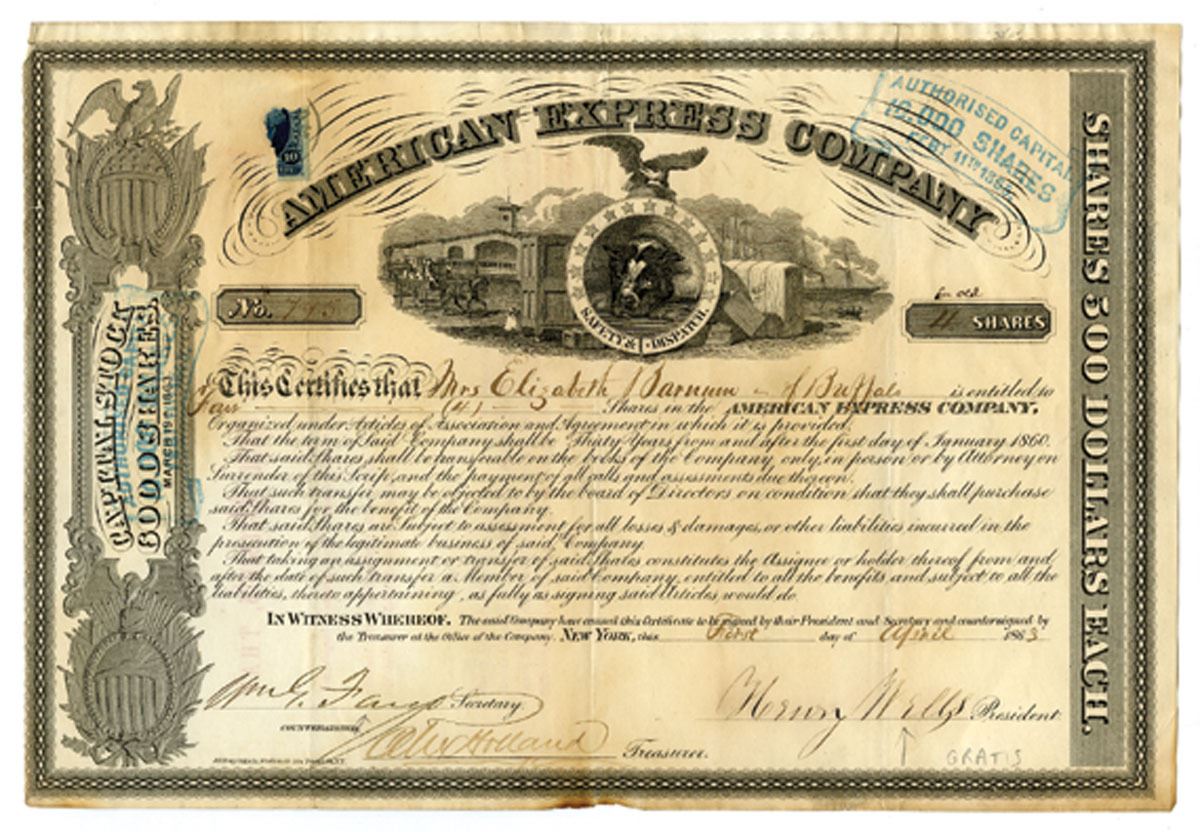 AMERICAN EXPRESS COMPANY
AUTHORISED CAPITAL
SHARES
FEBY 11TH
10
No. 
for old
4 SHARES
SAFETY & DISPATCH.
CAPITAL STOCK
SHARES
MARCH 19TH 1863
SHARES 500 DOLLARS EACH.
This Certifies that Mrs Elizabeth Barnum of Buffalo is entitled to
Four (4) Shares in the AMERICAN EXPRESS COMPANY,
Organized under Articles of Association and Agreement in which it is provided:
That the term of Said Company shall be Thirty Years from and after the first day of January 1860.
That said Shares shall be transferable on the books of the Company only, in person or by Attorney on
Surrender of this Scrip, and the payment of all calls and assessments due thereon.
That such transfer may be objected to by the board of Directors on condition that they shall purchase
said Shares for the benefit of the Company.
That said Shares are Subject to assessment for all losses & damages, or other liabilities incurred in the
prosecution of the legitimate business of said Company.
That taking an assignment or transfer of said Shares constitutes the Assignee or holder thereof from and
after the date of such transfer a Member of said Company, entitled to all the benefits and subject to all the
liabilities, thereto appertaining, as fully as signing said Articles would do.
IN WITNESS WHEREOF. The said Company have caused this Certificate to be signed by their President and Secretary and countersigned by
the Treasurer at the Office of the Company. NEW YORK, this First day of April 1863
Wm G. Fargo Secretary.
Henry Wells President
COUNTERSIGNED
Alex Holland Treasurer.
GRATIS